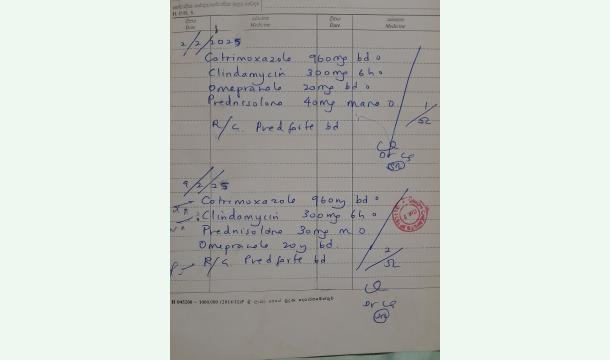 H
දිනය
Date
ඖෂධය
Medicine
දිනය
Date
ඖෂධය
Medicine
2/2/2025
Cotrimoxazole 960mg bd
Clindamycin 300mg 6h
Omeprazole 20mg bd
Prednisolone 40mg mane
R/G. Pred forte bd
1/52
Dr
9/2/25
Cotrimoxazole 960mg bd
Clindamycin 300mg 6h
Prednisolone 30mg m
Omeprazole 20g bd.
R/G. Pred forte bd
2/52
Dr
H 045200 – 1000,000 (2014/11)P